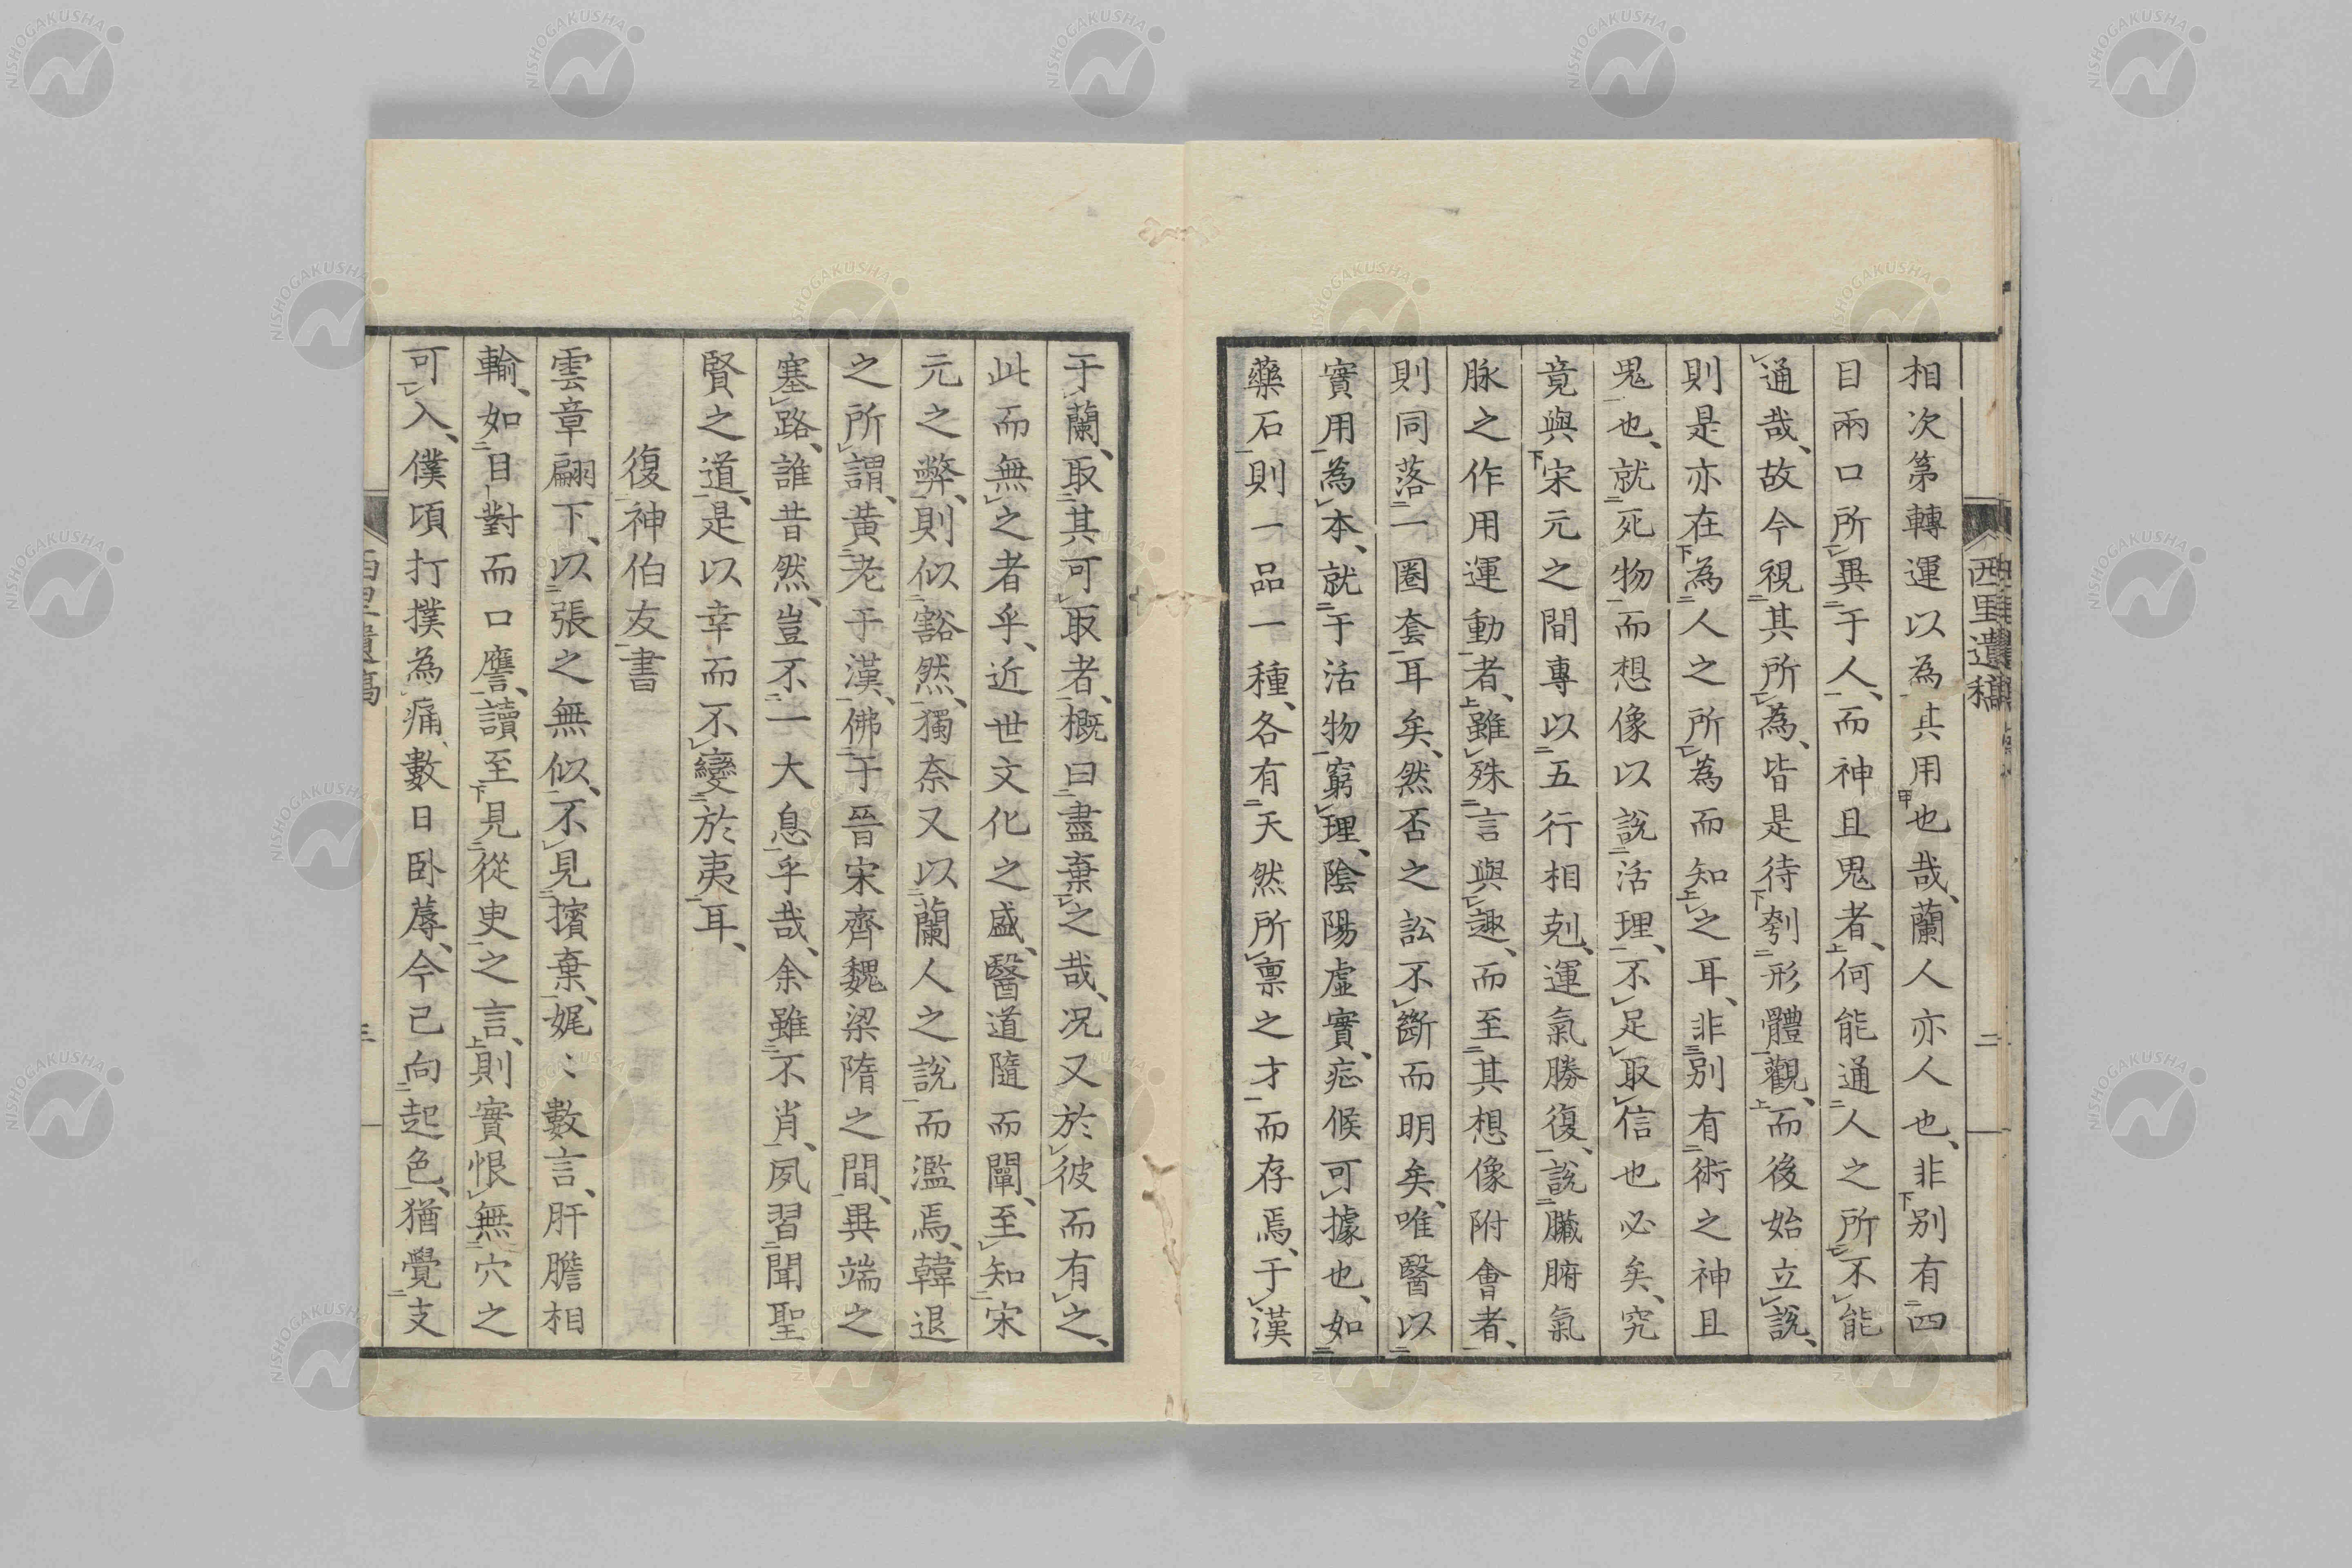 西里遺稿
二
相次第轉運以為其用也哉、蘭人亦人也、非別有四
目兩口所異于人、而神且鬼者、何能通人之所不能
通哉、故今視其所為、皆是待刳形體觀、而後始立說、
則是亦在為人之所為而知之耳、非別有術之神且
鬼也、就死物而想像以說活理、不足取信也必矣、究
竟與宋元之間專以五行相剋、運氣勝復、說臟腑氣
脉之作用運動者、雖殊言與趣、而至其想像附會者、
則同落一圈套耳矣、然否之訟不斷而明矣、唯醫以
實用為本、就于活物窮理、陰陽虛實、症候可據也、如
藥石則一品一種、各有天然所禀之才而存焉、于漢
于蘭、取其可取者、概曰盡棄之哉、况又於彼而有之、
此而無之者乎、近世文化之盛、醫道隨而闡、至知宋
元之弊、則似豁然、獨奈又以蘭人之說而濫焉、韓退
之所謂、黃老于漢、佛于晉宋齊魏梁隋之間、異端之
塞路、誰昔然、豈不一大息乎哉、余雖不肖、夙習聞聖
賢之道、是以幸而不變於夷耳、
復神伯友書
雲章翩下、以張之無似、不見擯棄、娓〻數言、肝膽相
輸、如目對而口譍、讀至見從史之言、則實恨無穴之
可入、僕頃打撲為痛、數日卧蓐、今已向起色、猶覺支
西里遺稿
三
NISHOGAKUSHA